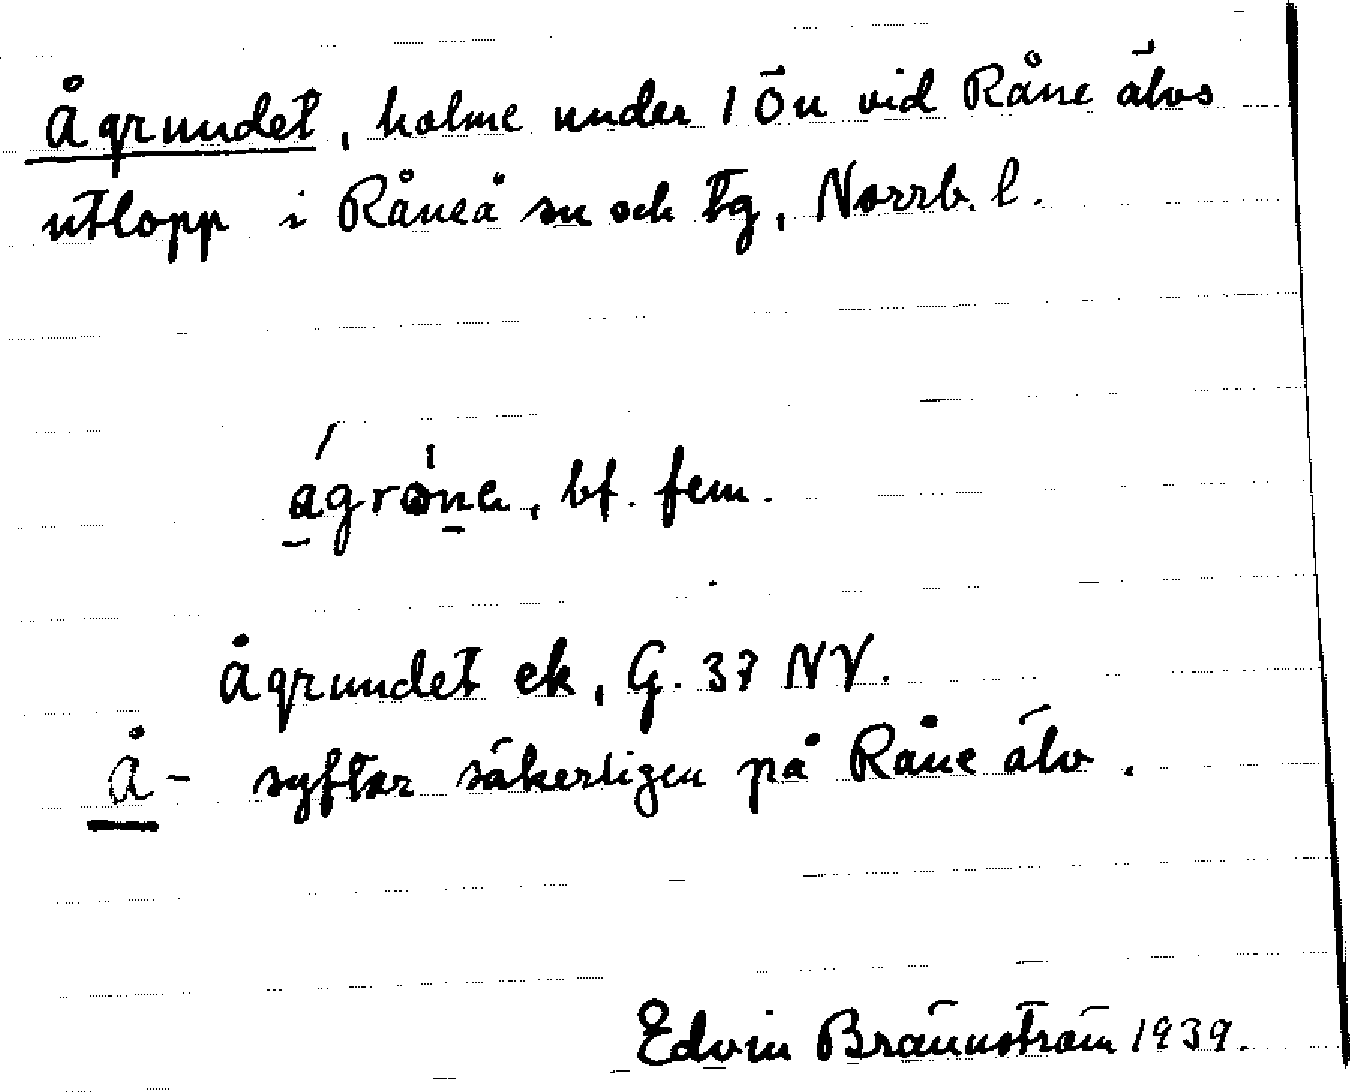 Ågrundet, holme under 1 Ön vid Råne älvs
utlopp i Råneå sn och tg, Norrb. l.
ágròna, bf. fem.
Ågrundet ek, G. 37 NV.
Å- syftar säkerligen på Råne älv.
Edvin Brännström 1939.